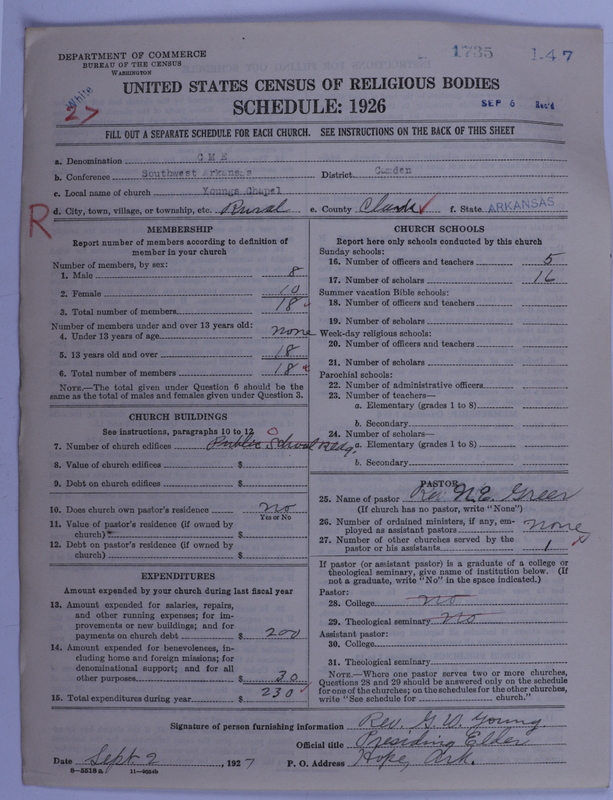 DEPARTMENT OF COMMERCE
BUREAU OF THE CENSUS
WASHINGTON
1735
1-4 7
White
27
UNITED STATES CENSUS OF RELIGIOUS BODIES
SCHEDULE: 1926
SEP 6 Rec'd
FILL OUT A SEPARATE SCHEDULE FOR EACH CHURCH. SEE INSTRUCTIONS ON THE BACK OF THIS SHEET
a. Denomination C M E
b. Conference Southwest Arkansas District Camden
c. Local name of church Youngs Chapel
R
d. City, town, village, or township, etc. Rural e. County Clark f. State ARKANSAS
MEMBERSHIP
Report number of members according to definition of
member in your church
Number of members, by sex:
1. Male 8
2. Female 10
3. Total number of members 18
Number of members under and over 13 years old:
4. Under 13 years of age none
5. 13 years old and over 18
6. Total number of members 18
NOTE.—The total given under Question 6 should be the
same as the total of males and females given under Question 3.
CHURCH BUILDINGS
See instructions, paragraphs 10 to 12
0
7. Number of church edifices Public School Bldg.
8. Value of church edifices $
9. Debt on church edifices $
10. Does church own pastor's residence no
Yes or No
11. Value of pastor's residence (if owned by
church) $
12. Debt on pastor's residence (if owned by
church) $
EXPENDITURES
Amount expended by your church during last fiscal year
13. Amount expended for salaries, repairs,
and other running expenses; for im-
provements or new buildings; and for
payments on church debt $ 200
14. Amount expended for benevolences, in-
cluding home and foreign missions; for
denominational support; and for all
other purposes $ 30
15. Total expenditures during year $ 230
CHURCH SCHOOLS
Report here only schools conducted by this church
Sunday schools:
16. Number of officers and teachers 5
17. Number of scholars 16
Summer vacation Bible schools:
18. Number of officers and teachers
19. Number of scholars
Week-day religious schools:
20. Number of officers and teachers
21. Number of scholars
Parochial schools:
22. Number of administrative officers
23. Number of teachers—
a. Elementary (grades 1 to 8)
b. Secondary
24. Number of scholars—
a. Elementary (grades 1 to 8)
b. Secondary
PASTOR
25. Name of pastor Rev. N. E. Greer
(If church has no pastor, write "None")
26. Number of ordained ministers, if any, em-
ployed as assistant pastors none
27. Number of other churches served by the
pastor or his assistants 1
If pastor (or assistant pastor) is a graduate of a college or
theological seminary, give name of institution below. (If
not a graduate, write "No" in the space indicated.)
Pastor:
28. College no
29. Theological seminary no
Assistant pastor:
30. College
31. Theological seminary
NOTE.—Where one pastor serves two or more churches,
Questions 28 and 29 should be answered only on the schedule
for one of the churches; on the schedules for the other churches,
write "See schedule for church."
Signature of person furnishing information Rev. G. W. Young
Official title Presiding Elder
Date Sept. 2, 1927 P. O. Address Hope, Ark.
8—5518 a 11—9064b